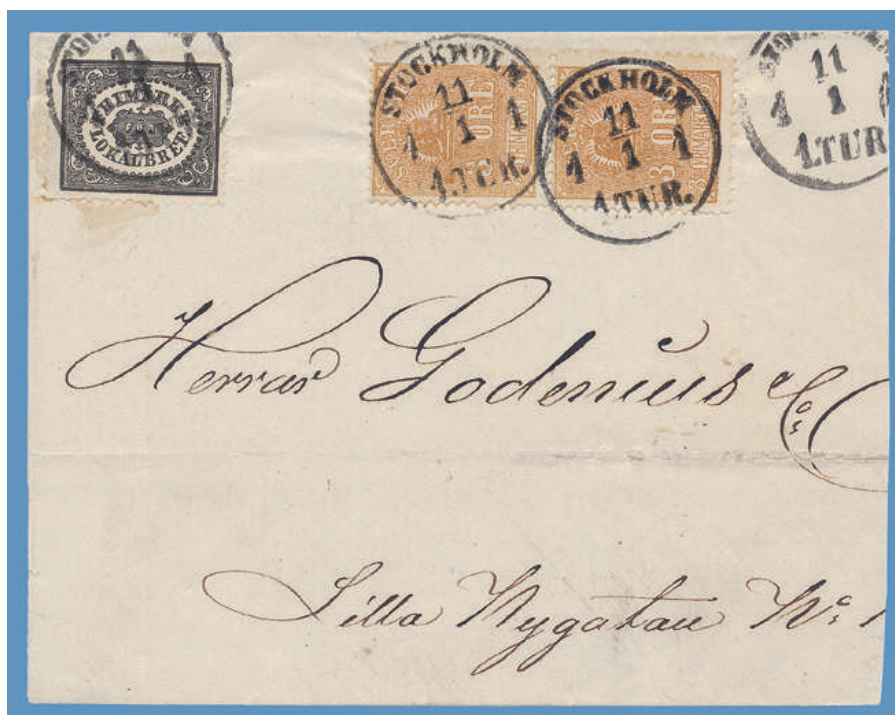 FRIMÄRKE
LOKALBREF
STOCKHOLM
11
1 1 1
1.TUR.
ÖRE
STOCKHOLM
11
1 1 1
1.TUR.
3 ÖRE
FRIMÄRKE
11
1 1
1.TUR
Herrar Godenius & Co,
Lilla Nygatan No,